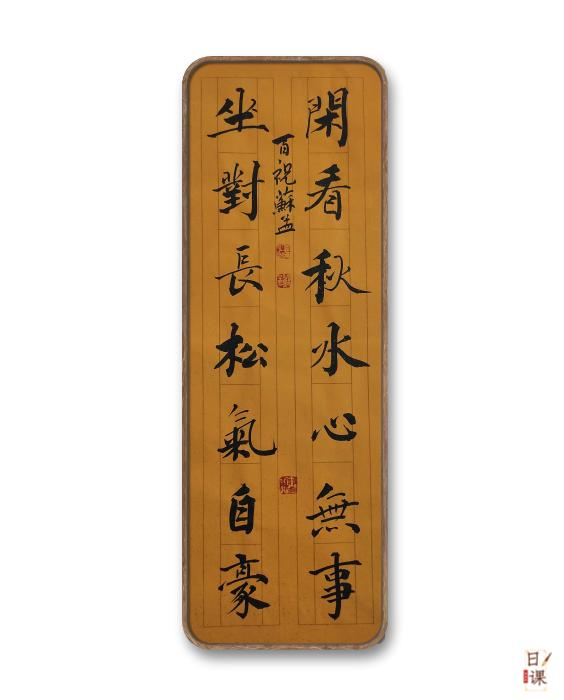 閑看秋水心無事
坐對長松氣自豪
百祝蘇孟
日课